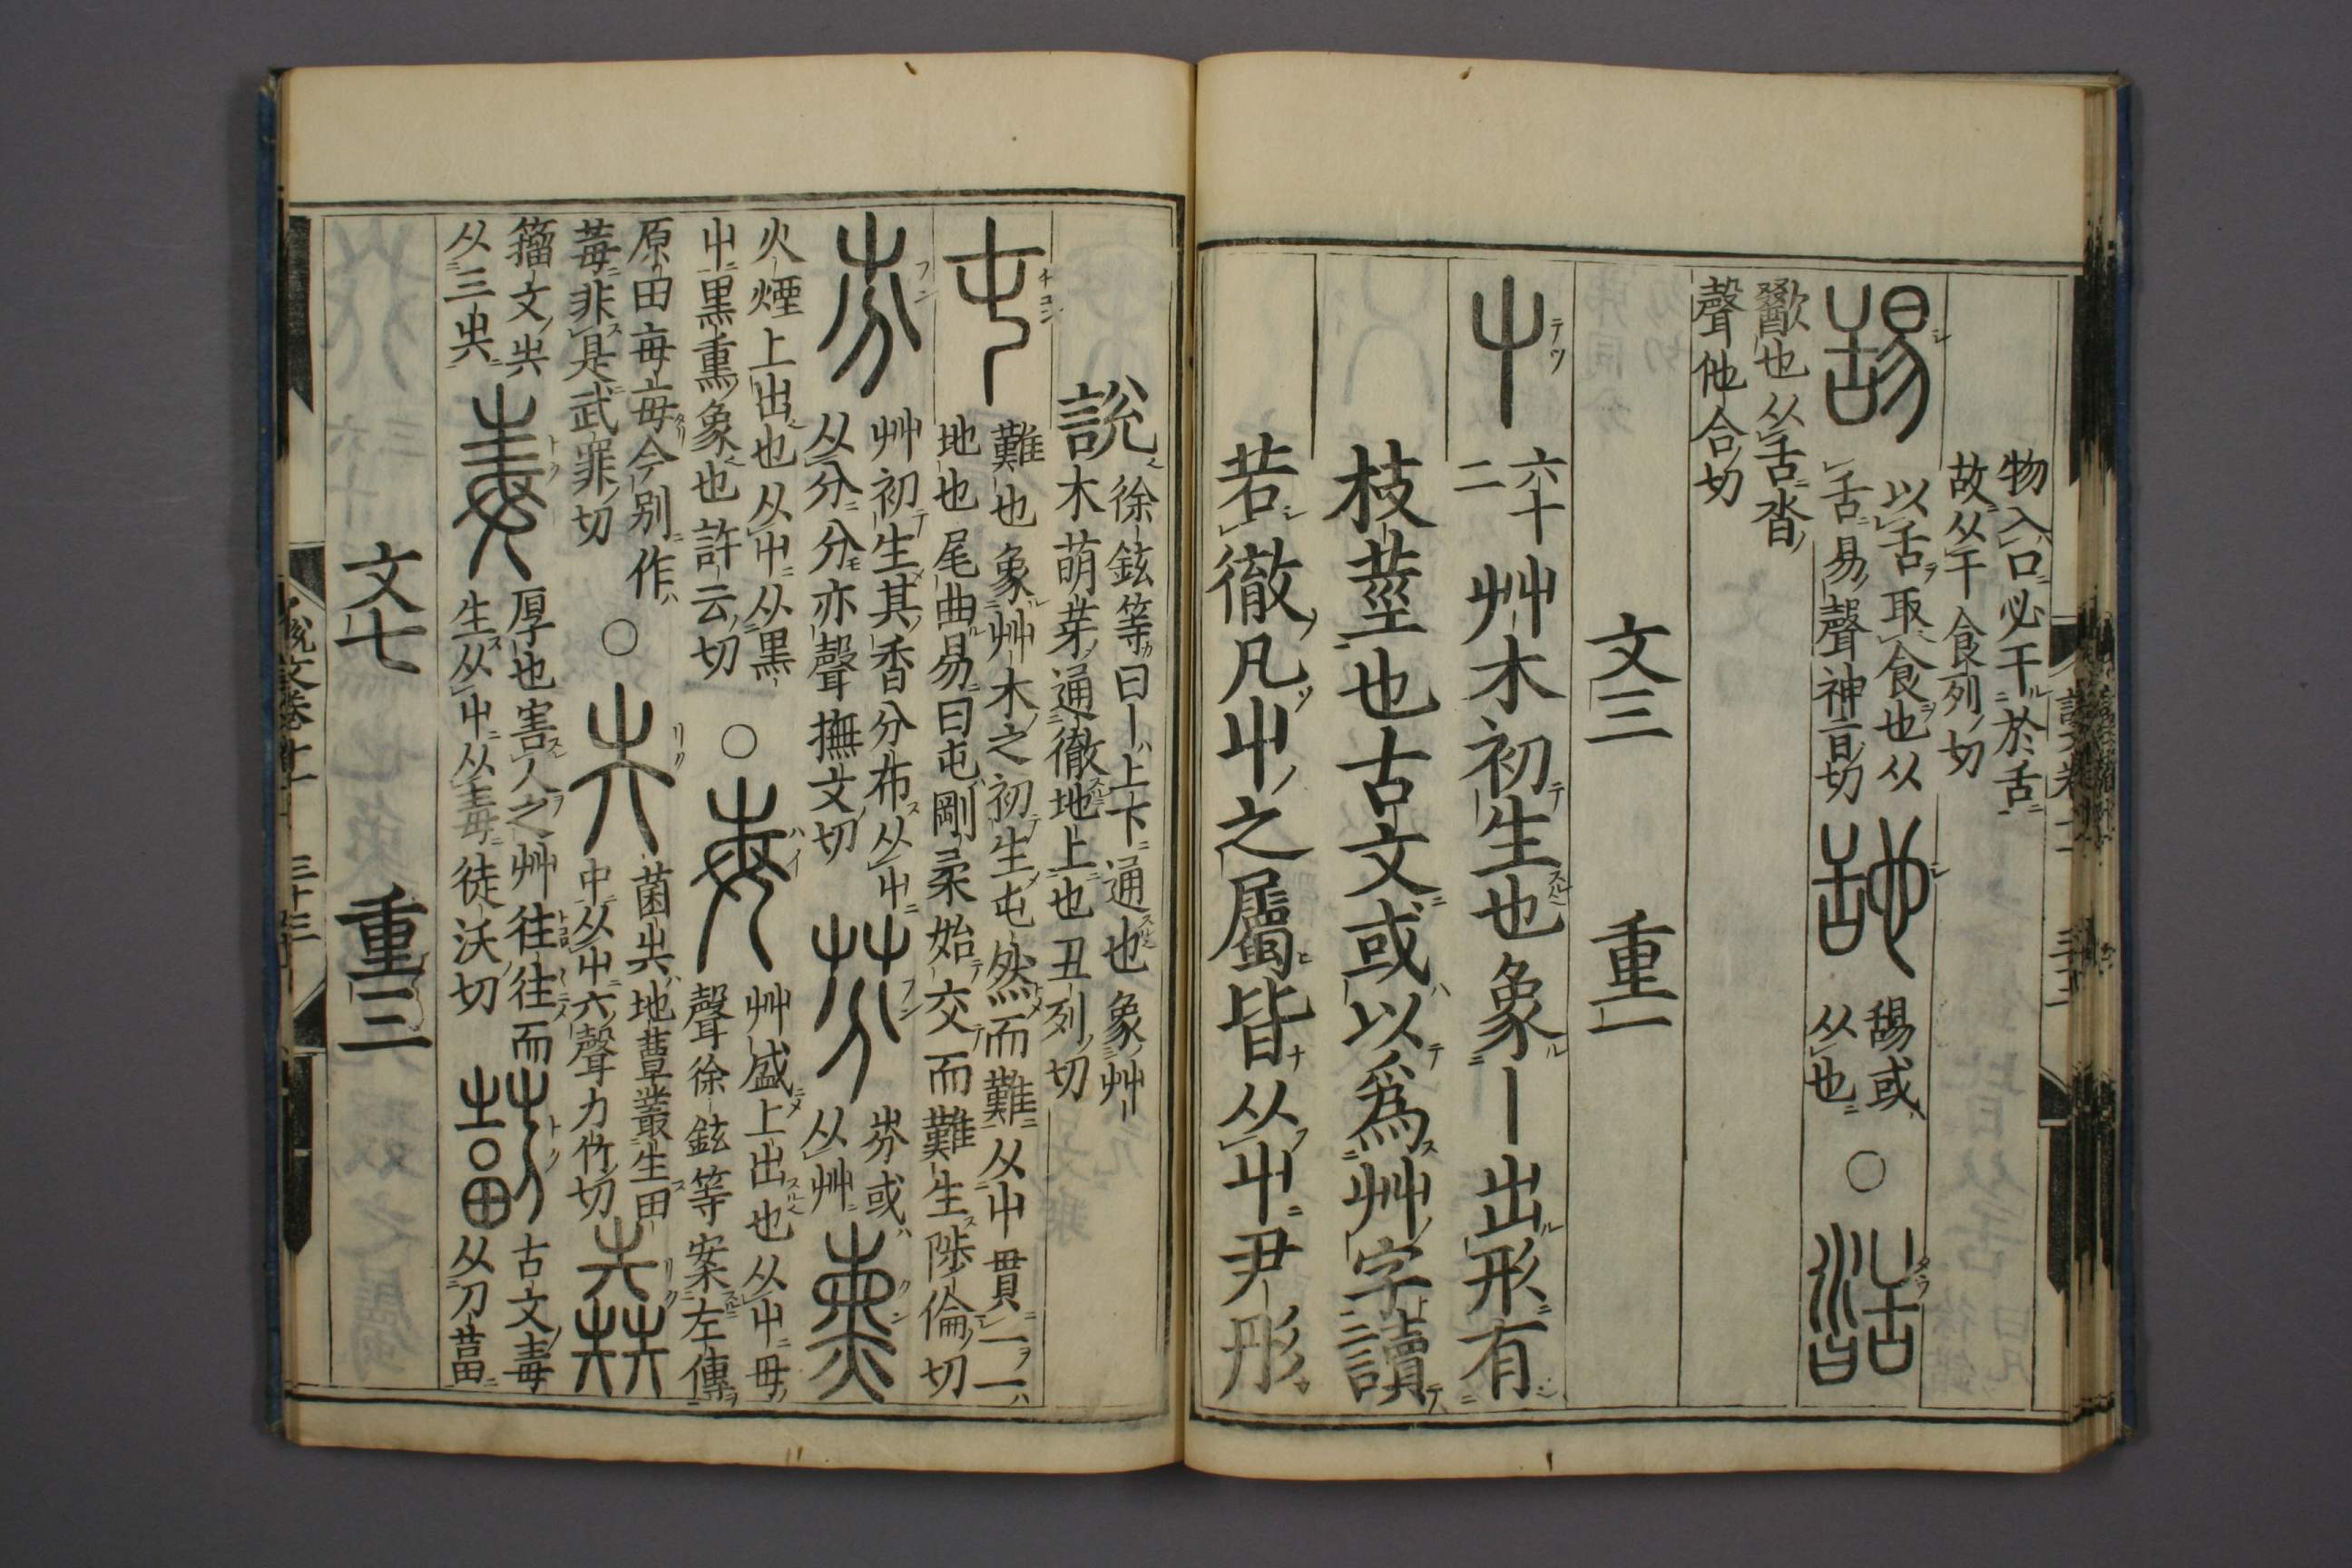 物入口必干於舌
故从干食列切
舓
以舌取食也从
舌易聲神旨切
舓或
从也
○
歠也从舌沓
聲他合切
文三
重一
屮
六十
二
艸木初生也象丨出形有
枝莖也古文或以爲艸字讀
若徹凡屮之屬皆从屮尹彤
說
徐鉉等曰丨上下通也象艸
木萌芽通徹地上也丑列切
屯
難也象艸木之初生屯然而難从屮貫一一
地也尾曲易曰屯剛柔始交而難生陟倫切
艸初生其香分布从屮
从分分亦聲撫文切
芬
岎或
从艸
火煙上出也从屮从黑
屮黑熏象也許云切
○
艸盛上出也从屮母
聲徐鉉等案左傳
原田每每今別作
莓非是武罪切
○
菌圥地蕈叢生田
中从屮六聲力竹切
籒文圥
从三圥
毒
厚也害人之艸往往而
生从屮从毒徒沃切
古文毒
从刀葍
文七
重三
三十三